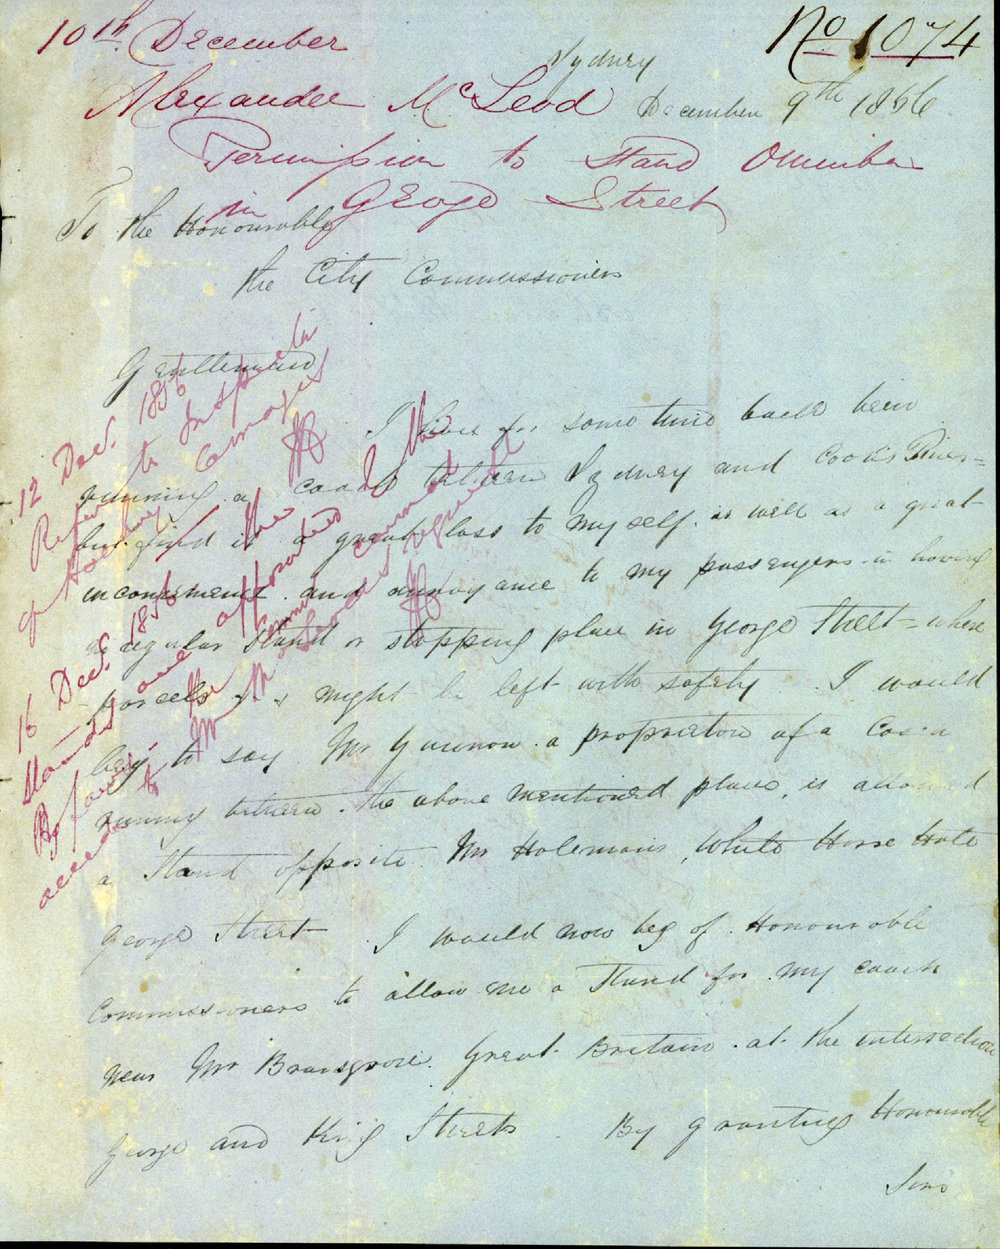 No 1074
10th December
Alexander McLeod
Permission to Stand Omnibus
in George Street
Sydney
December 9th 1856
To the Honourable
the City Commissioners
Gentlemen
I have for some time back been
running a coach between Sydney and Cooks River
but find it a great loss to myself as well as a great
inconvenience and annoyance to my passengers in having
no regular Stand or stopping place in George Street = where
parcels might be left with safety. I would
beg to say Mr a proprietor of a Coach
running between the above mentioned places, is allowed
a Stand opposite Mr White Horse Hotel
George Street. I would now beg of Honourable
Commissioners to allow me a Stand for my coach
near Mr Bransgrove Great Britain at the intersection
George and King Streets. By granting Honourable
Sirs
12 Dec. 1856
Refer to Inspector
of Hackney Carriages
16 Dec. 1856
Stands are appointed by the
Commissioners cannot
accede to Mr McLeods request